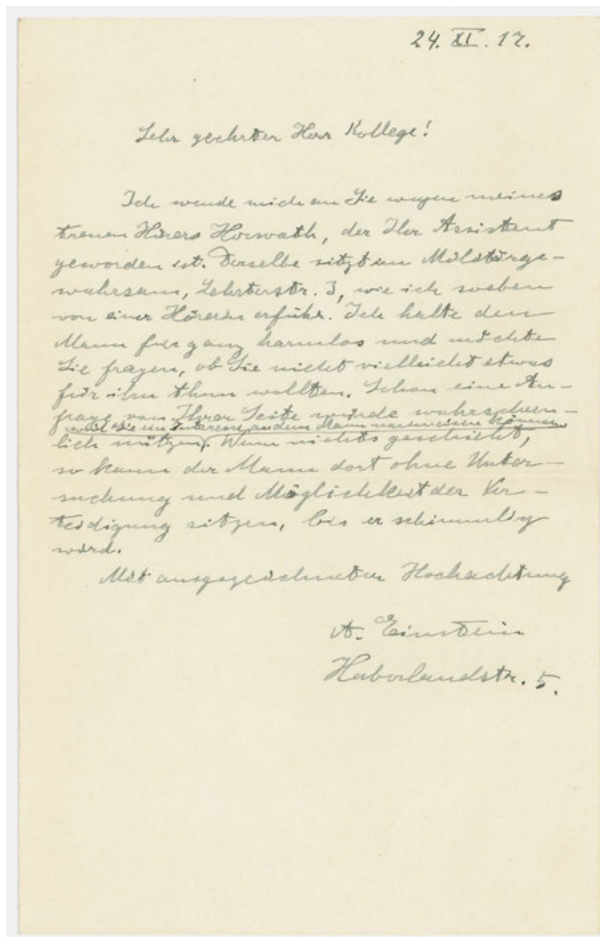 24. XI. 17.
Sehr geehrter Herr Kollege!
Ich wende mich an Sie wegen meines
treuen Hörers Horwath, der Ihr Assistent
geworden ist. Derselbe sitzt im Militärge-
wahrsam, Lehrterstr. 3, wie ich soeben
von einer Hörerin erfuhr. Ich halte den
Mann für ganz harmlos und möchte
Sie fragen, ob Sie nicht vielleicht etwas
für ihn thun wollten. Schon eine An-
frage von Ihrer Seite würde wahrschein-
weil Sie ein Interesse an dem Mann nachweisen können
lich nützen. Wenn nichts geschieht,
so kann der Mann dort ohne Unter-
suchung und Möglichkeit der Ver-
teidigung sitzen, bis er schimmlig
wird.
Mit ausgezeichneter Hochachtung
A. Einstein
Haberlandstr. 5.